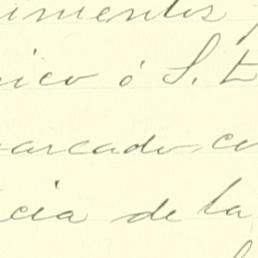 imentos
ico ó S. E
arcado co
cia de la